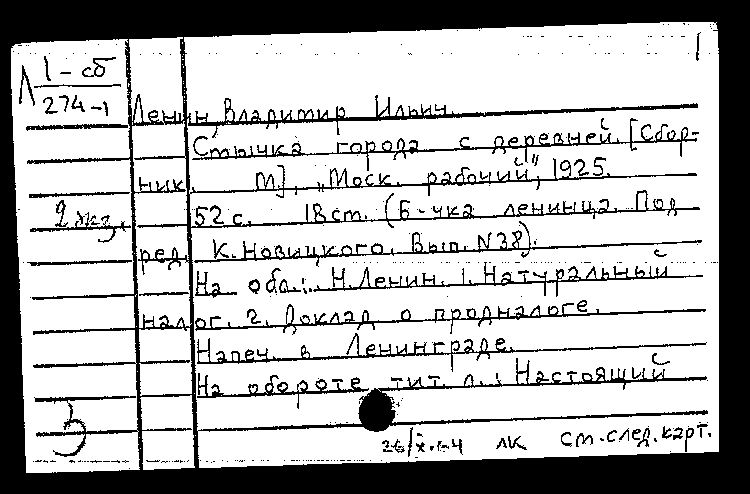 1
Л 1-сб
274-1
Ленин, Владимир Ильич.
Стычка города с деревней. [Сбор-
ник. М], „Моск. рабочий", 1925.
2 экз. 52 с. 18 ст. (Б-чка ленинца. Под
ред. К. Новицкого. Вып. N38).
На обл.: Н. Ленин. 1. Натуральный
налог. 2. Доклад о продналоге.
Напеч. в Ленинграде.
На обороте тит. л.: Настоящий
лк см. след. карт.